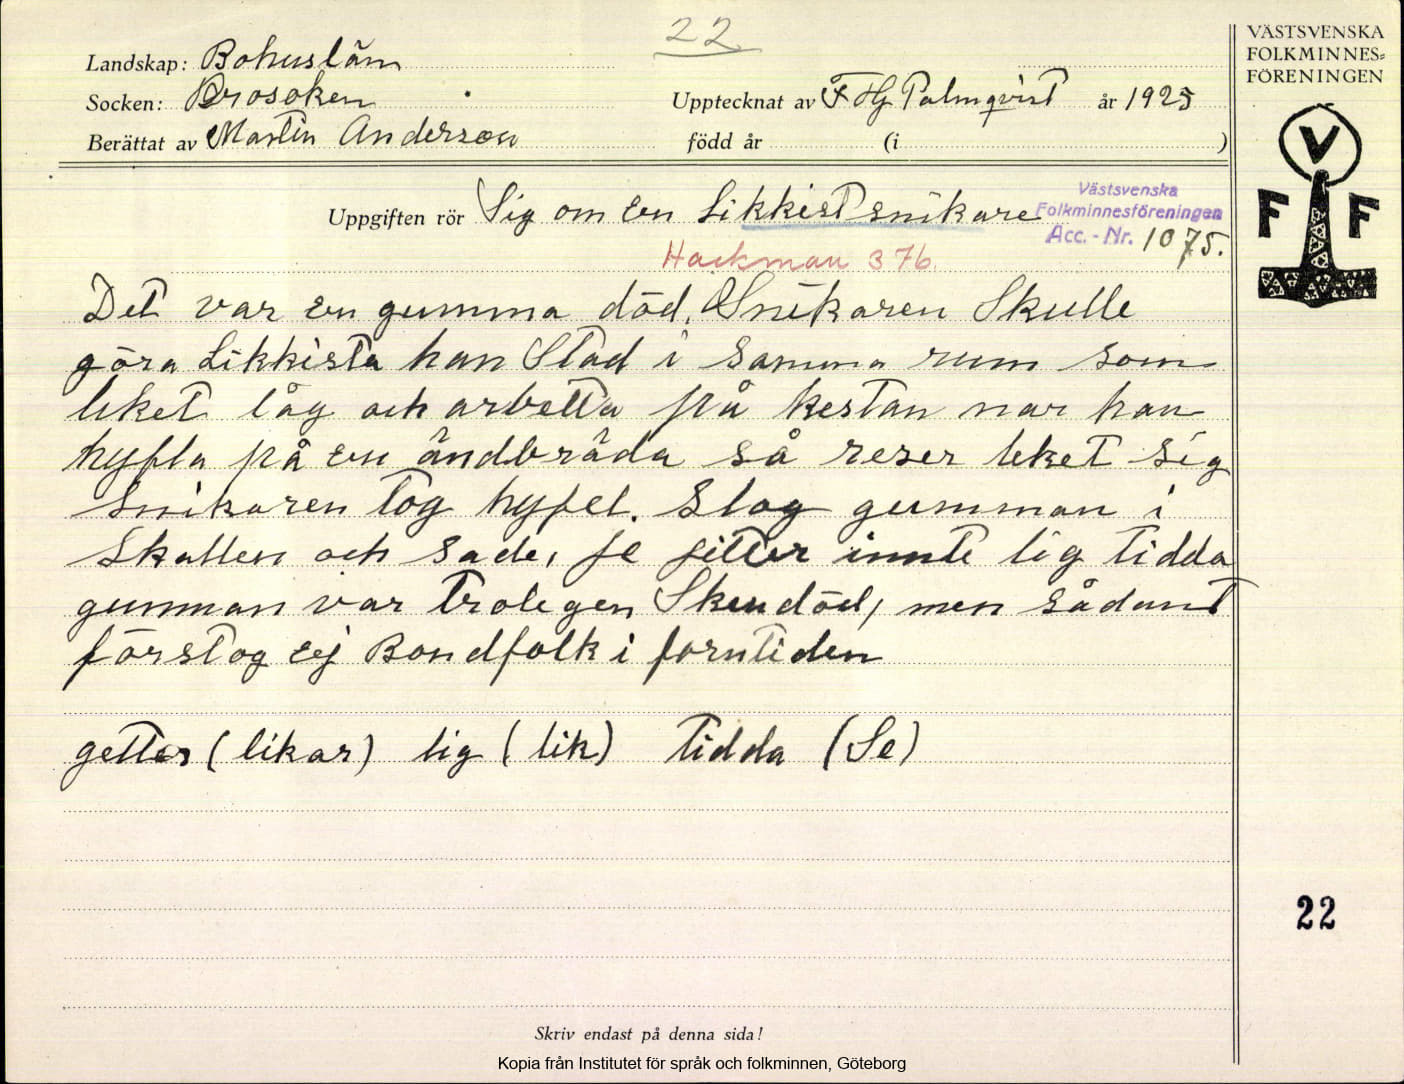 22
Landskap: Bohuslän
Socken: Brosoken
Upptecknat av F Hj Palmqvist år 1925
Berättat av Martin Anderson
född år (i )
VÄSTSVENSKA
FOLKMINNES=
FÖRENINGEN
V
F F
Uppgiften rör Sig om en Likkistsnikare
Västsvenska
Folkminnesföreningen
Acc. - Nr. 1075.
Hackman 376.
Det var en gumma död, Snikaren Skulle
göra Likkista han Stod i samma rum som
liket låg och arbetta på kestan nar han
hyfla på en ändbräda så reser leket sig
Snikaren tog hyfel. slog gumman i
Skallen och sade, je gitter innte lig tidda
gumman var trolegen Skendöd, men sådant
förstog ej Bondfolk i forntiden
getter (likar) lig (lik) tidda (Se)
22
Skriv endast på denna sida!
Kopia från Institutet för språk och folkminnen, Göteborg